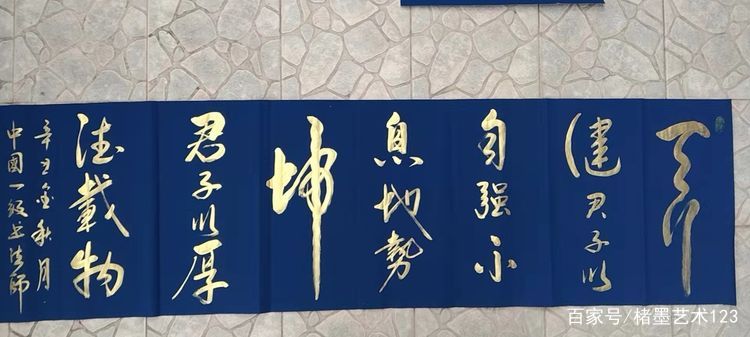 天行
健君子以
自强不
息地势
坤
君子以厚
德载物
辛丑金秋月
中國一级书法師
百家号/楮墨艺术123